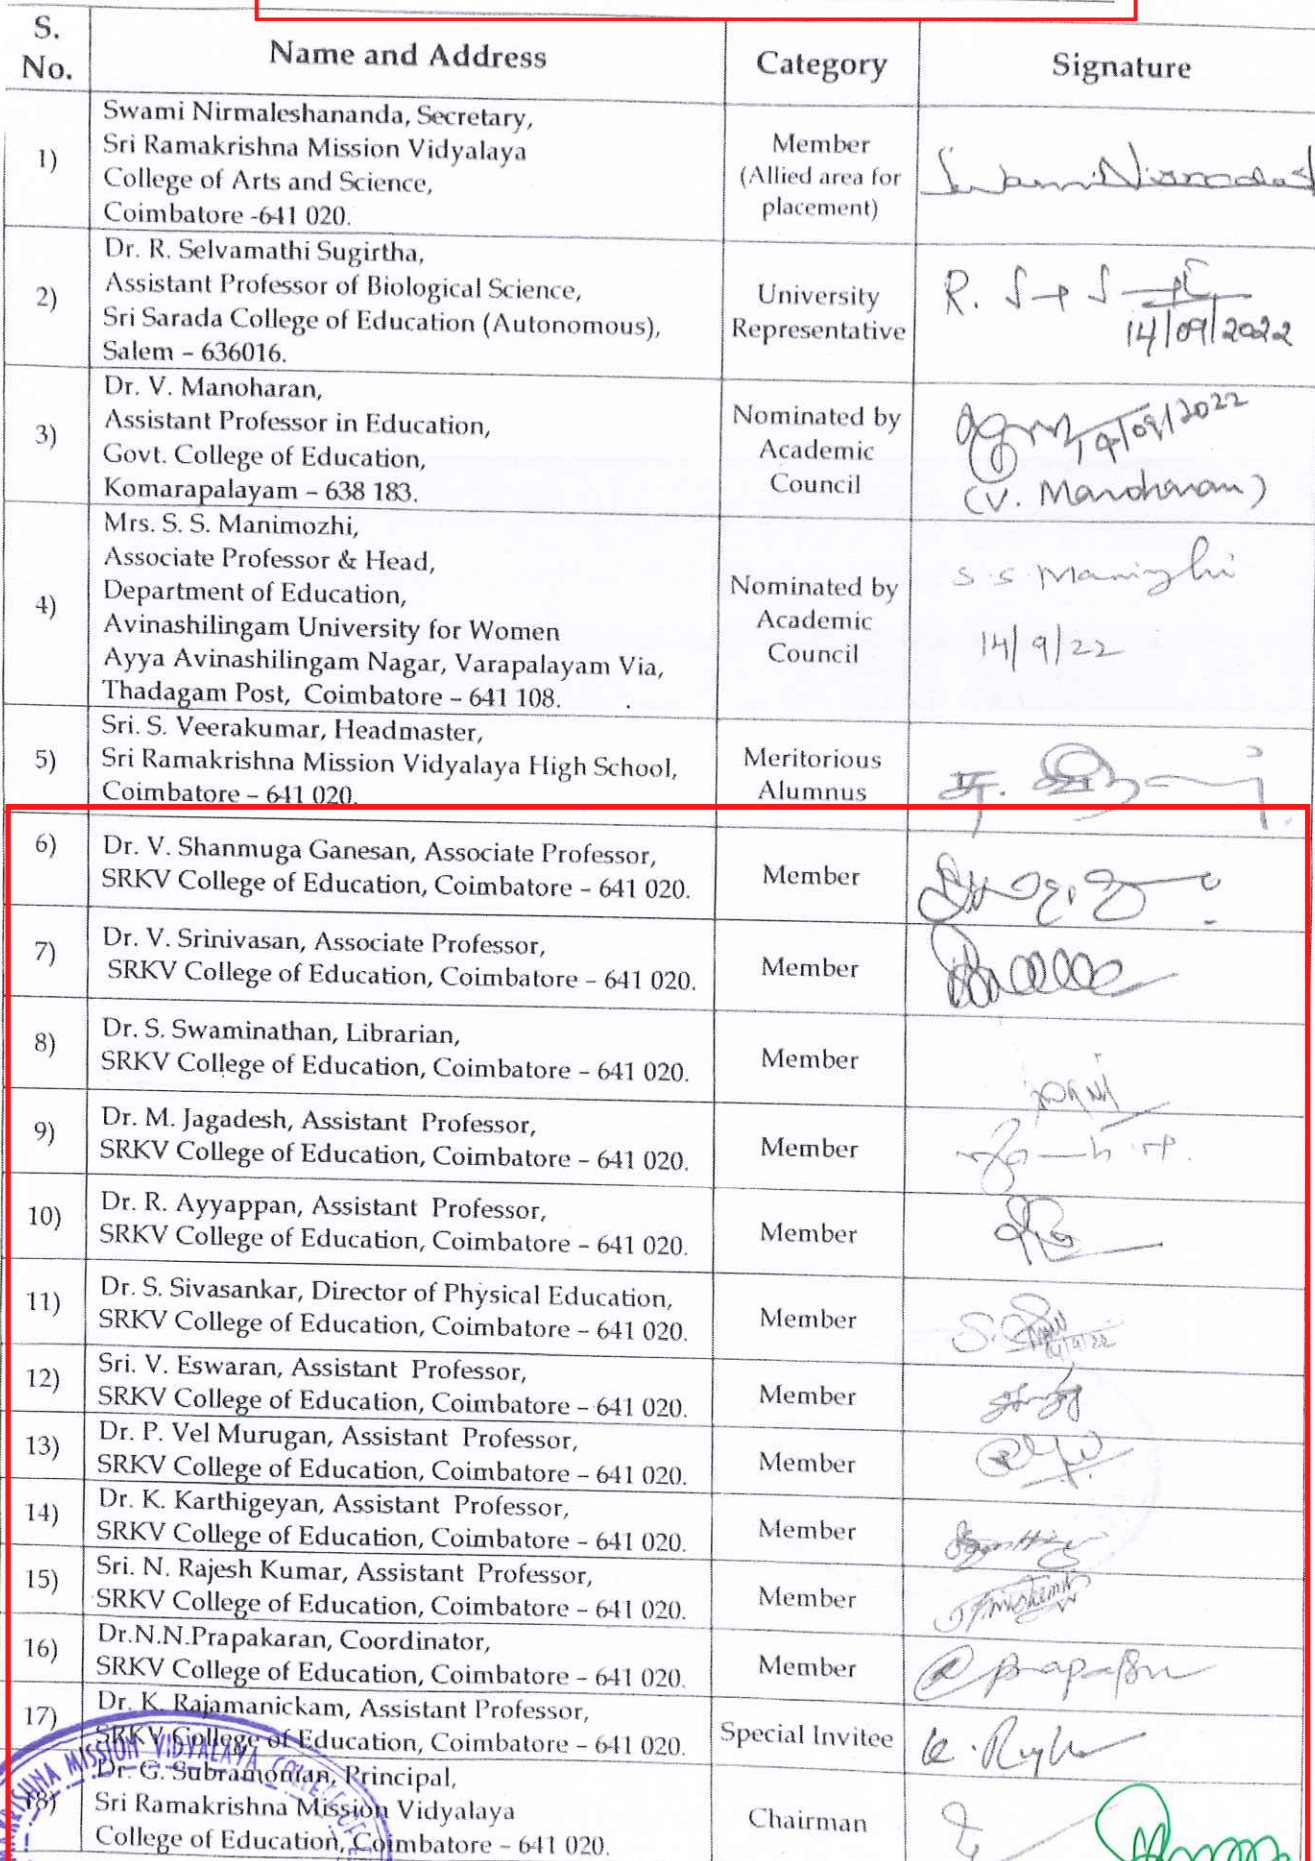 S. No. Name and Address Category Signature
1) Swami Nirmaleshananda, Secretary,
Sri Ramakrishna Mission Vidyalaya
College of Arts and Science,
Coimbatore -641 020.
Member
(Allied area for
placement)
2) Dr. R. Selvamathi Sugirtha,
Assistant Professor of Biological Science,
Sri Sarada College of Education (Autonomous),
Salem – 636016.
University
Representative
R.
14/09/2022
3) Dr. V. Manoharan,
Assistant Professor in Education,
Govt. College of Education,
Komarapalayam – 638 183.
Nominated by
Academic
Council
14/09/2022
(V. Manoharan)
4) Mrs. S. S. Manimozhi,
Associate Professor & Head,
Department of Education,
Avinashilingam University for Women
Ayya Avinashilingam Nagar, Varapalayam Via,
Thadagam Post, Coimbatore – 641 108.
Nominated by
Academic
Council
S. S.
14/9/22
5) Sri. S. Veerakumar, Headmaster,
Sri Ramakrishna Mission Vidyalaya High School,
Coimbatore – 641 020.
Meritorious
Alumnus
6) Dr. V. Shanmuga Ganesan, Associate Professor,
SRKV College of Education, Coimbatore – 641 020.
Member
7) Dr. V. Srinivasan, Associate Professor,
SRKV College of Education, Coimbatore – 641 020.
Member
8) Dr. S. Swaminathan, Librarian,
SRKV College of Education, Coimbatore – 641 020.
Member
9) Dr. M. Jagadesh, Assistant Professor,
SRKV College of Education, Coimbatore – 641 020.
Member
10) Dr. R. Ayyappan, Assistant Professor,
SRKV College of Education, Coimbatore – 641 020.
Member
11) Dr. S. Sivasankar, Director of Physical Education,
SRKV College of Education, Coimbatore – 641 020.
Member
14/9/22
12) Sri. V. Eswaran, Assistant Professor,
SRKV College of Education, Coimbatore – 641 020.
Member
13) Dr. P. Vel Murugan, Assistant Professor,
SRKV College of Education, Coimbatore – 641 020.
Member
14) Dr. K. Karthigeyan, Assistant Professor,
SRKV College of Education, Coimbatore – 641 020.
Member
15) Sri. N. Rajesh Kumar, Assistant Professor,
SRKV College of Education, Coimbatore – 641 020.
Member
16) Dr.N.N.Prapakaran, Coordinator,
SRKV College of Education, Coimbatore – 641 020.
Member
17) Dr. K. Rajamanickam, Assistant Professor,
SRKV College of Education, Coimbatore – 641 020.
Special Invitee
18) Dr. G. Subramonian, Principal,
Sri Ramakrishna Mission Vidyalaya
College of Education, Coimbatore – 641 020.
Chairman
MISSION VIDYALAYA